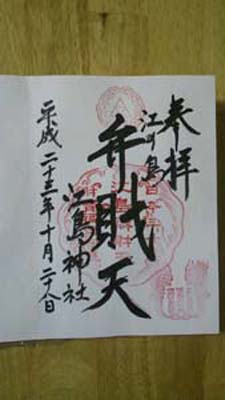 奉拝
江の島
弁財天
江島神社
平成二十三年十月二十八日